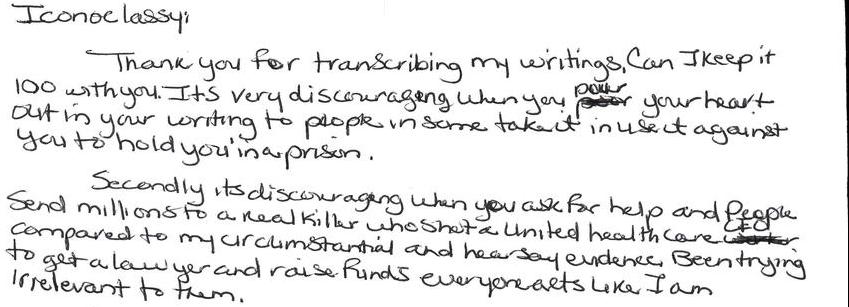 Iconoclassy,
Thank you for transcribing my writings, Can I keep it
100 with you. Its very discouraging when you pour your heart
out in your writing to people in some take it in use it against
you to hold you in a prison.
Secondly its discouraging when you ask for help and People
Send millions to a real killer who shot a United health care CEO
compared to my circumstantial and hearsay evidence. Been trying
to get a lawyer and raise funds everyone acts like I am
irrelevant to them.